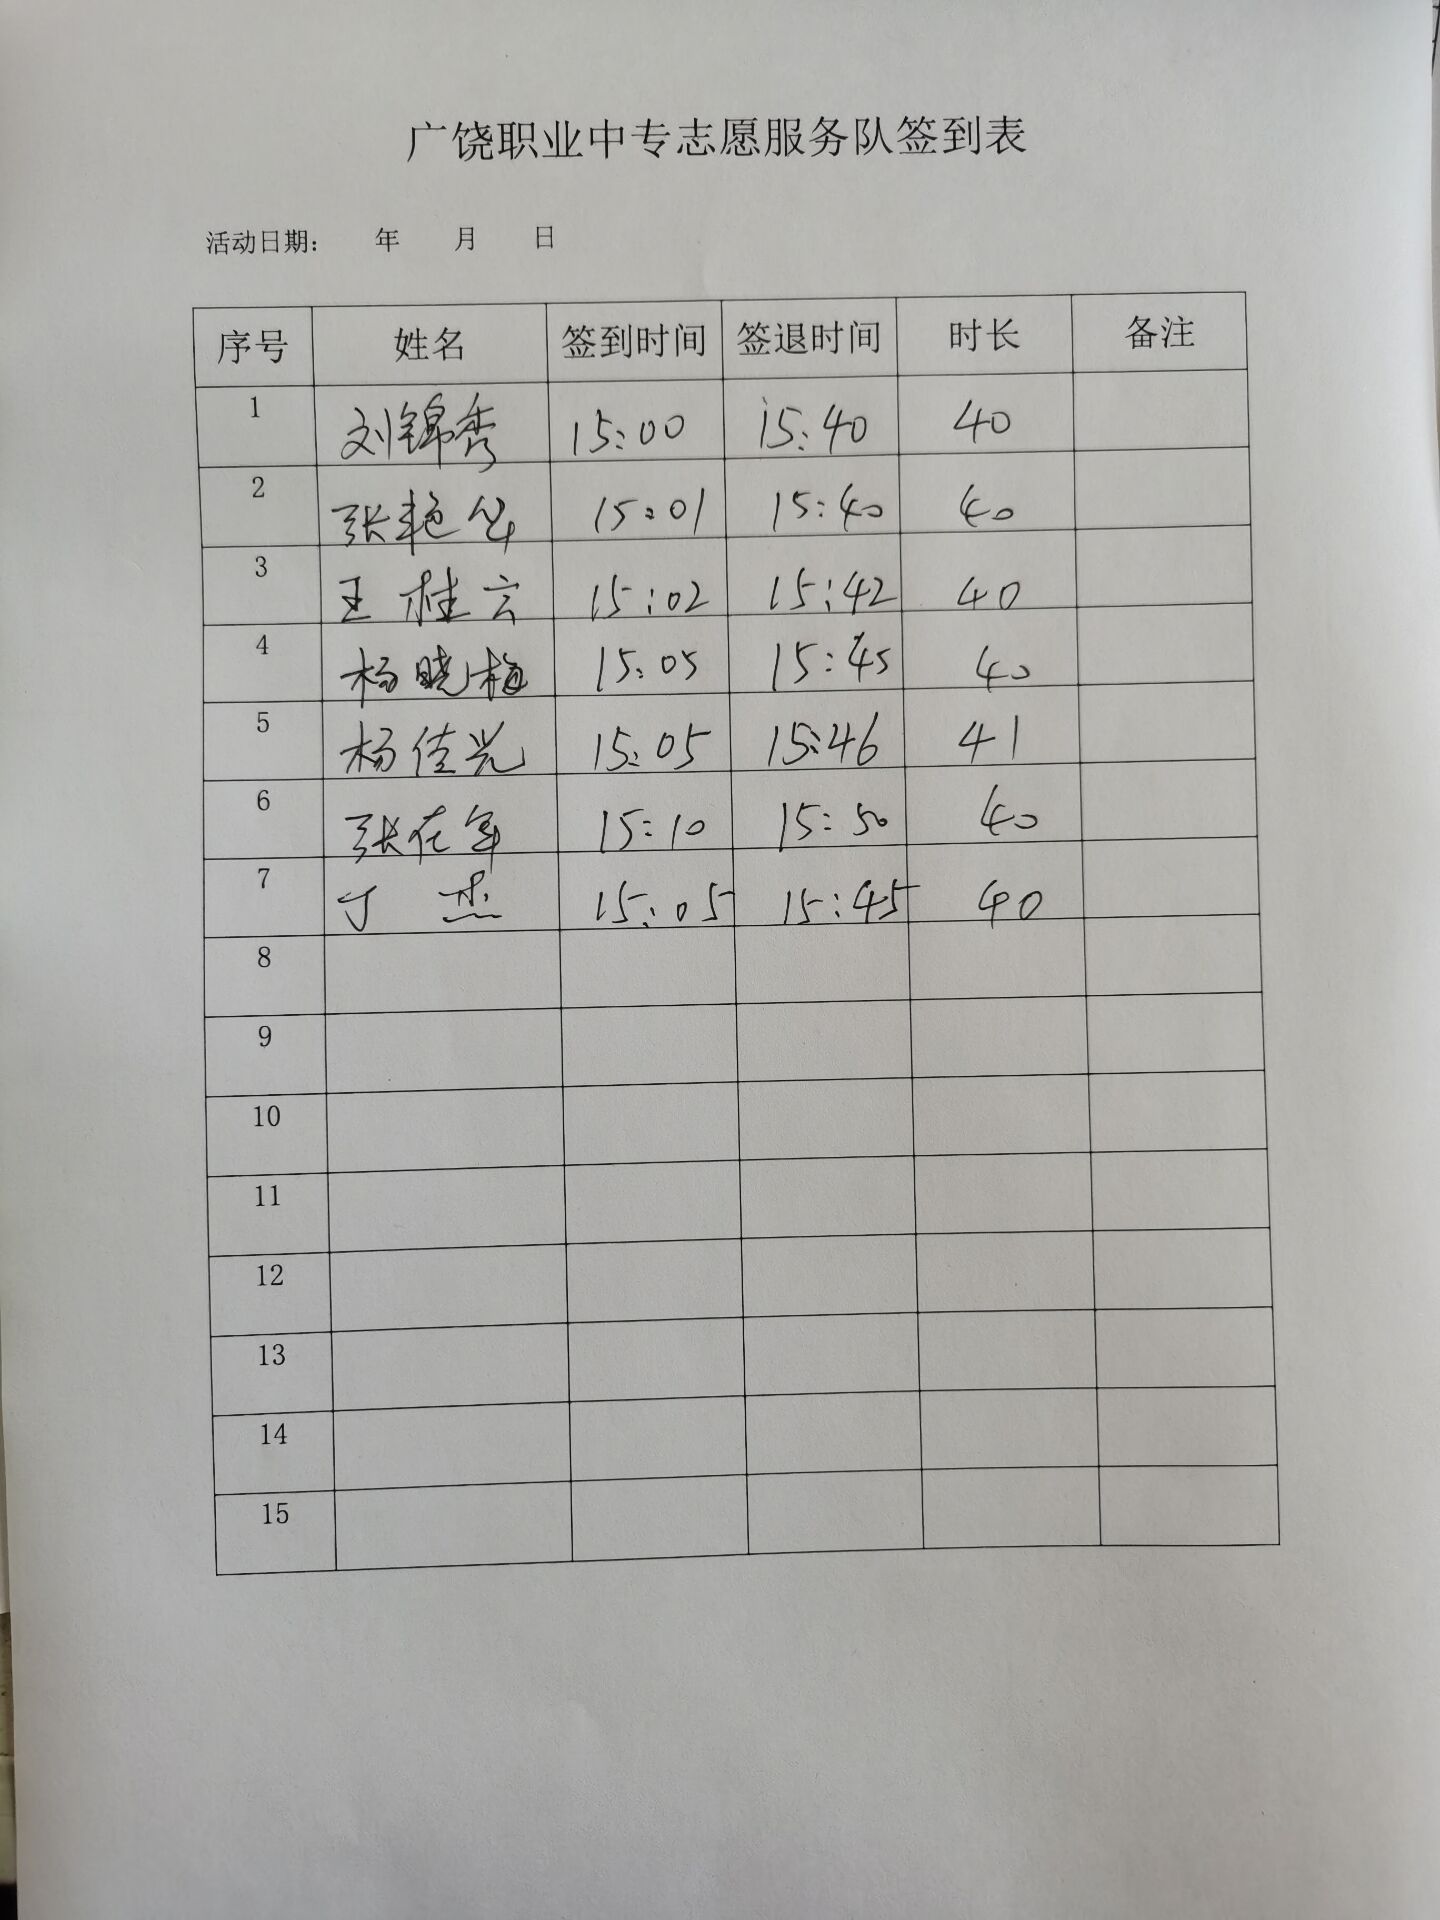 广饶职业中专志愿服务队签到表
活动日期： 年 月 日
序号 姓名 签到时间 签退时间 时长 备注
1 刘锦秀 15:00 15:40 40
2 张艳华 15:01 15:40 40
3 王桂云 15:02 15:42 40
4 杨晓梅 15:05 15:45 40
5 杨佳兴 15:05 15:46 41
6 张在军 15:10 15:50 40
7 丁杰 15:05 15:45 40
8
9
10
11
12
13
14
15